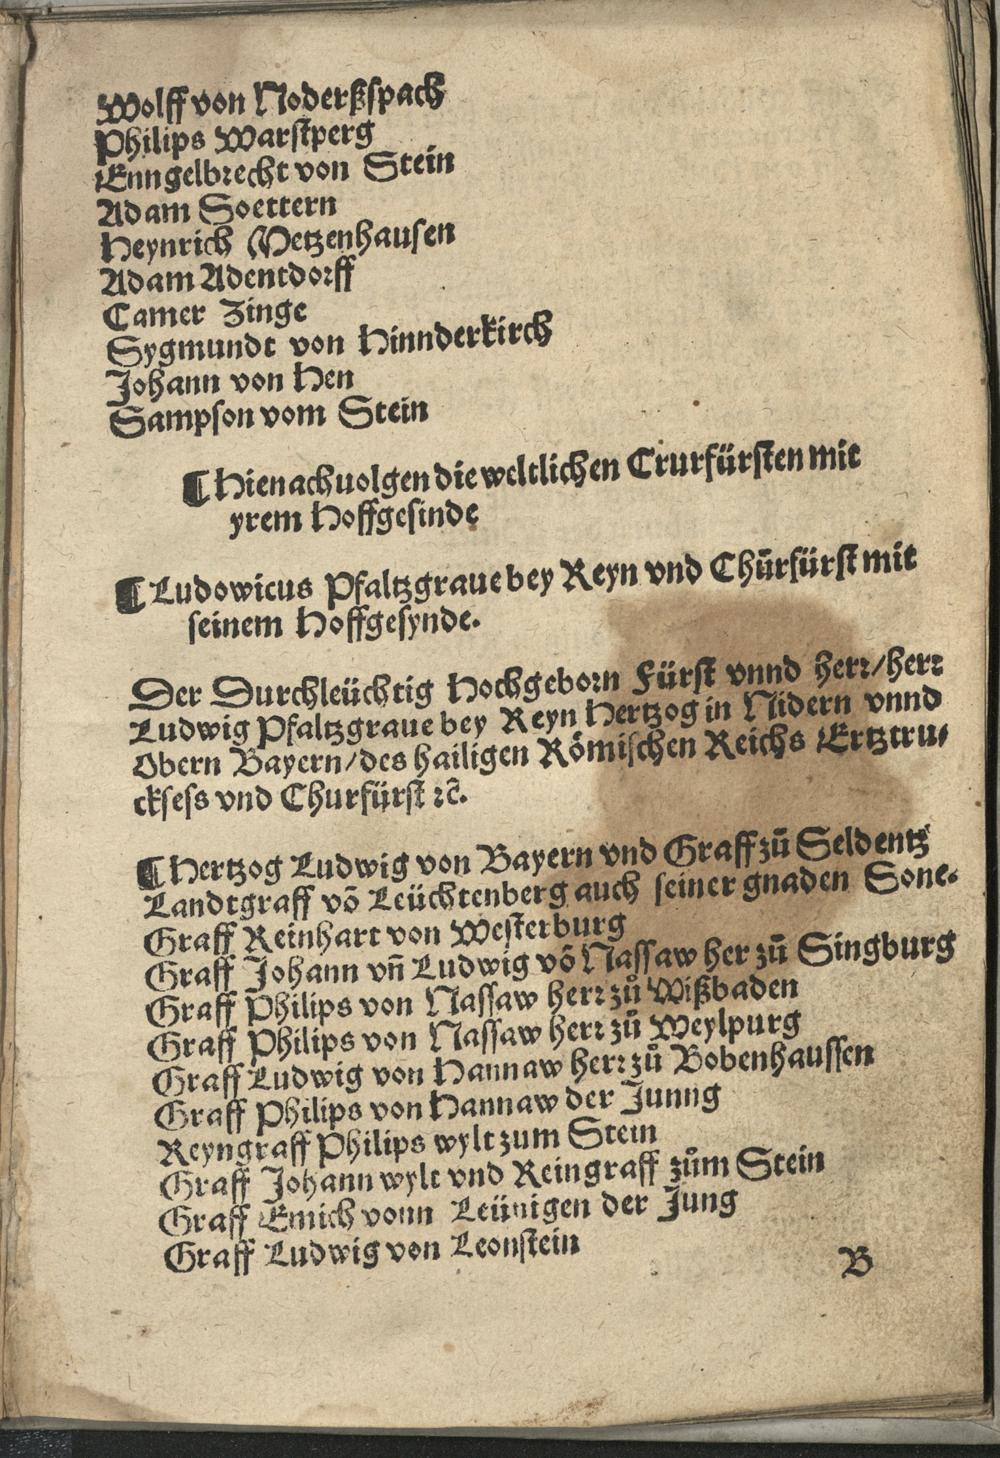 Wolff von Noderßspach
Philips Warstperg
Enngelbrecht von Stein
Adam Soettern
Heynrich Metzenhausen
Adam Adentdorff
Camer Zinge
Sygmundt von Hinnderkirch
Johann von Hen
Sampson vom Stein
¶ Hienachuolgen die weltlichen Crurfürsten mit
yrem Hoffgesinde
¶ Ludowicus Pfaltzgraue bey Reyn vnd Chũrfürst mit
seinem Hoffgesynde.
Der Durchleüchtig Hochgeborn Fürst vnnd herr/herr
Ludwig Pfaltzgraue bey Reyn Hertzog in Nidern vnnd
Obern Bayern/des hailigen Römischen Reichs Ertztru⸗
cksess vnd Churfürst ꝛc̃.
¶ Hertzog Ludwig von Bayern vnd Graff zũ Seldentz
Landtgraff võ Leüchtenberg auch seiner gnaden Sone.
Graff Reinhart von Westerburg
Graff Johann vñ Ludwig võ Nassaw her zũ Singburg
Graff Philips von Nassaw herr zů Wißbaden
Graff Philips von Nassaw herr zů Weylpurg
Graff Ludwig von Hannaw herr zů Bobenhaussen
Graff Philips von Hannaw der Junng
Reyngraff Philips wylt zum Stein
Graff Johann wylt vnd Reingraff zům Stein
Graff Emich vonn Leünigen der Jung
Graff Ludwig von Leonstein
B